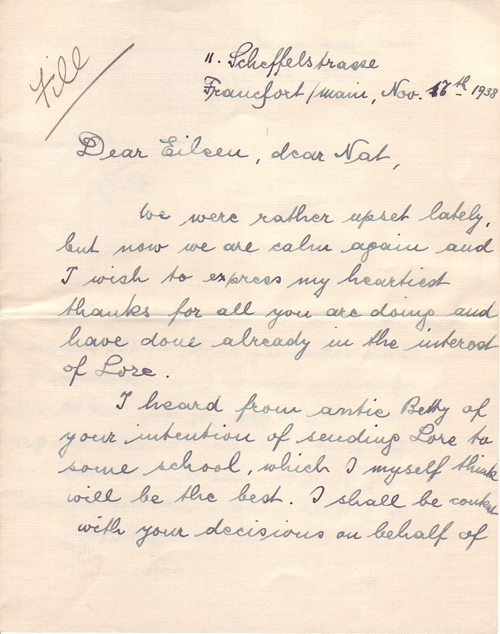 Fill
11. Scheffelstrasse
Francfort/Main, Nov. 17th 1938
Dear Eileen, dear Nat,
We were rather upset lately,
but now we are calm again and
I wish to express my heartiest
thanks for all you are doing and
have done already in the interest
of Lore.
I heard from antie Betty of
your intention of sending Lore to
some school, which I myself think
will be the best. I shall be content
with your decisions on behalf of